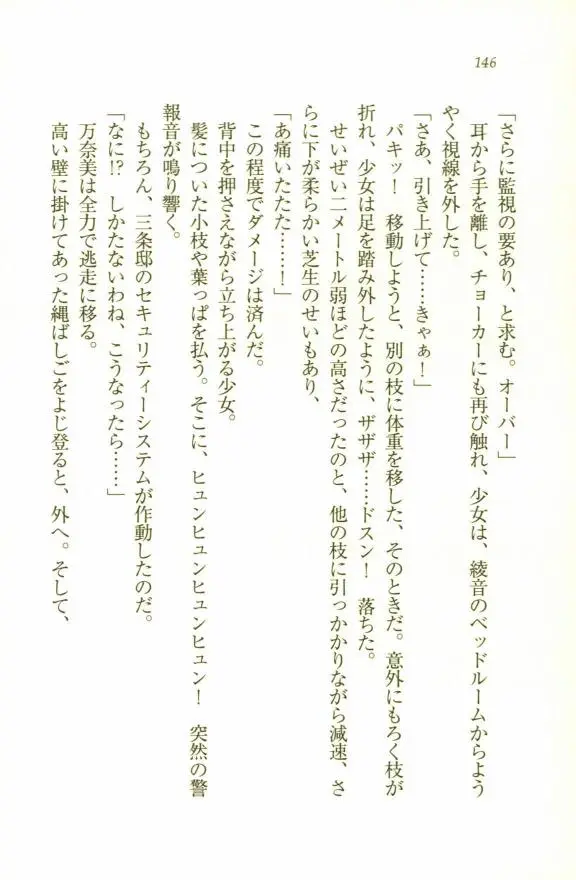 146
「さらに監視の要あり、と求む。オーバー」
耳から手を離し、チョーカーにも再び触れ、少女は、綾音のベッドルームからよう
やく視線を外した。
「さあ、引き上げて……きゃぁ！」
パキッ！　移動しようと、別の枝に体重を移した、そのときだ。意外にもろく枝が
折れ、少女は足を踏み外したように、ザザザ……ドスン！　落ちた。
せいぜい二メートル弱ほどの高さだったのと、他の枝に引っかかりながら減速、さ
らに下が柔らかい芝生のせいもあり、
「あ痛いたたた……！」
この程度でダメージは済んだ。
背中を押さえながら立ち上がる少女。
髪についた小枝や葉っぱを払う。そこに、ヒュンヒュンヒュンヒュン！　突然の警
報音が鳴り響く。
もちろん、三条邸のセキュリティーシステムが作動したのだ。
「なに!?　しかたないわね、こうなったら……」
万奈美は全力で逃走に移る。
高い壁に掛けてあった縄ばしごをよじ登ると、外へ。そして、